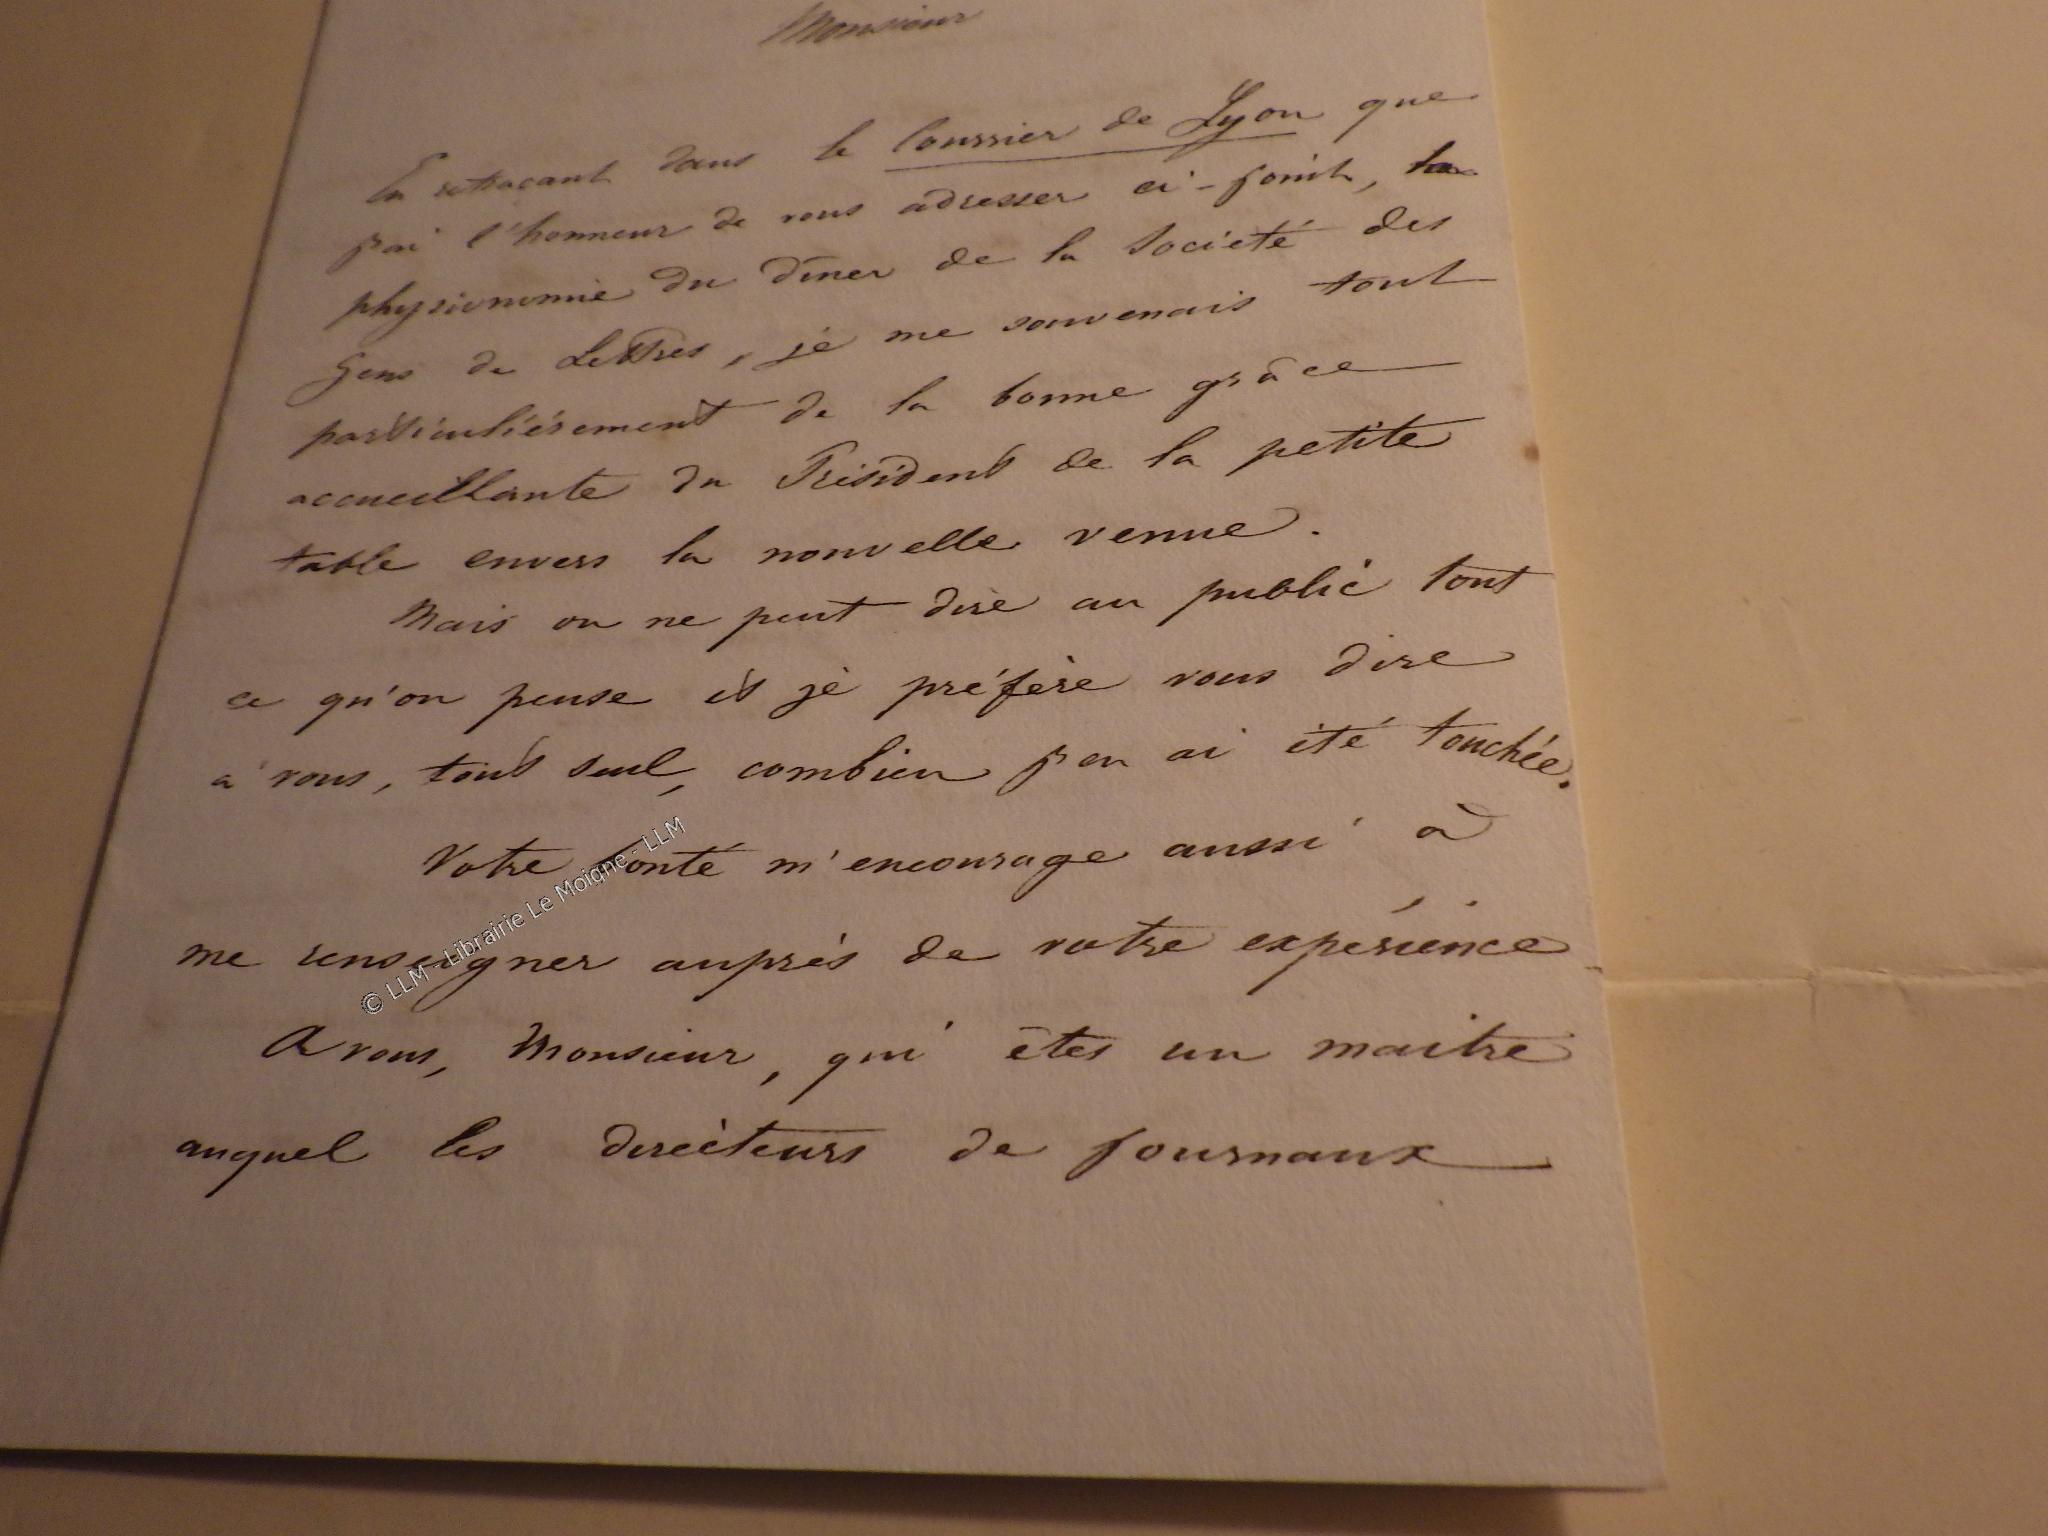 Monsieur
En retraçant dans le Courrier de Lyon que
j'ai l'honneur de vous adresser ci-joint, la
physionomie du dîner de la Société des
Gens de Lettres, je me souvenais tout
particulièrement de la bonne grâce
accueillante du Président de la petite
table envers la nouvelle venue.
Mais on ne peut dire au public tout
ce qu'on pense et je préfère vous dire
à vous, tout seul, combien j'en ai été touchée.
Votre bonté m'encourage aussi à
me renseigner auprès de votre expérience
A vous, Monsieur, qui êtes un maître
auquel les directeurs de journaux
© LLM - Librairie Le Moigne - LLM